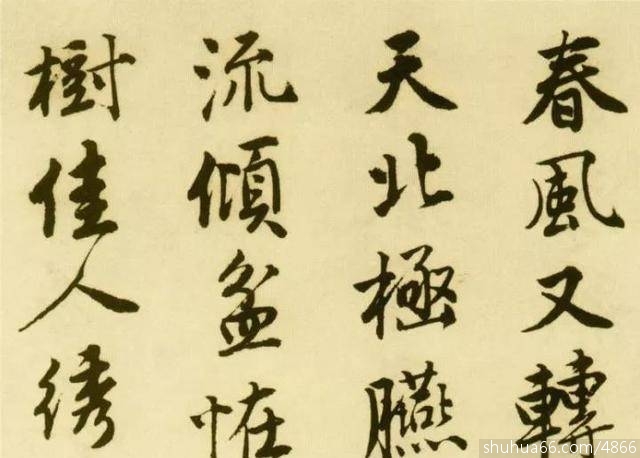 春風又轉
天北極臙
流傾盆恠
樹佳人綉
shuhua66.com/4866